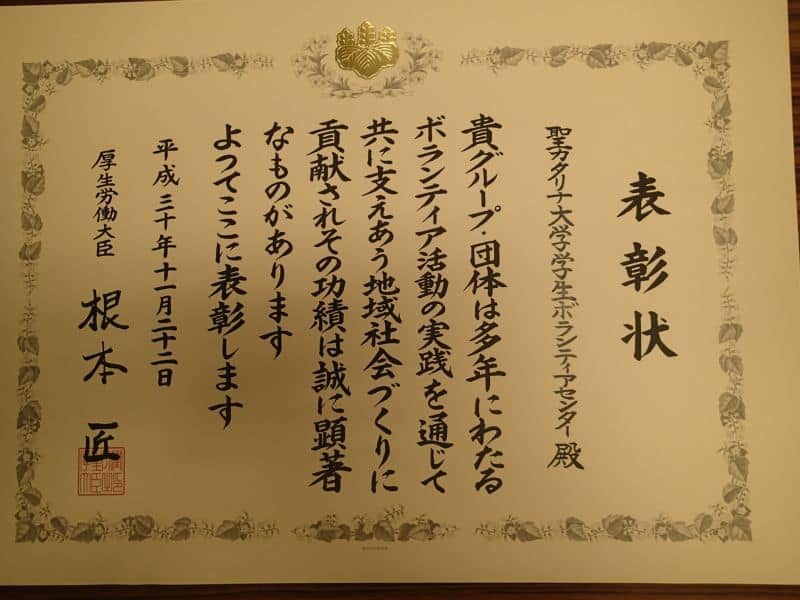 表彰状
聖カタリナ大学学生ボランティアセンター殿
貴グループ・団体は多年にわたる
ボランティア活動の実践を通じて
共に支えあう地域社会づくりに
貢献されその功績は誠に顕著
なものがあります
よってここに表彰します
平成三十年十一月二十二日
厚生労働大臣 根本匠